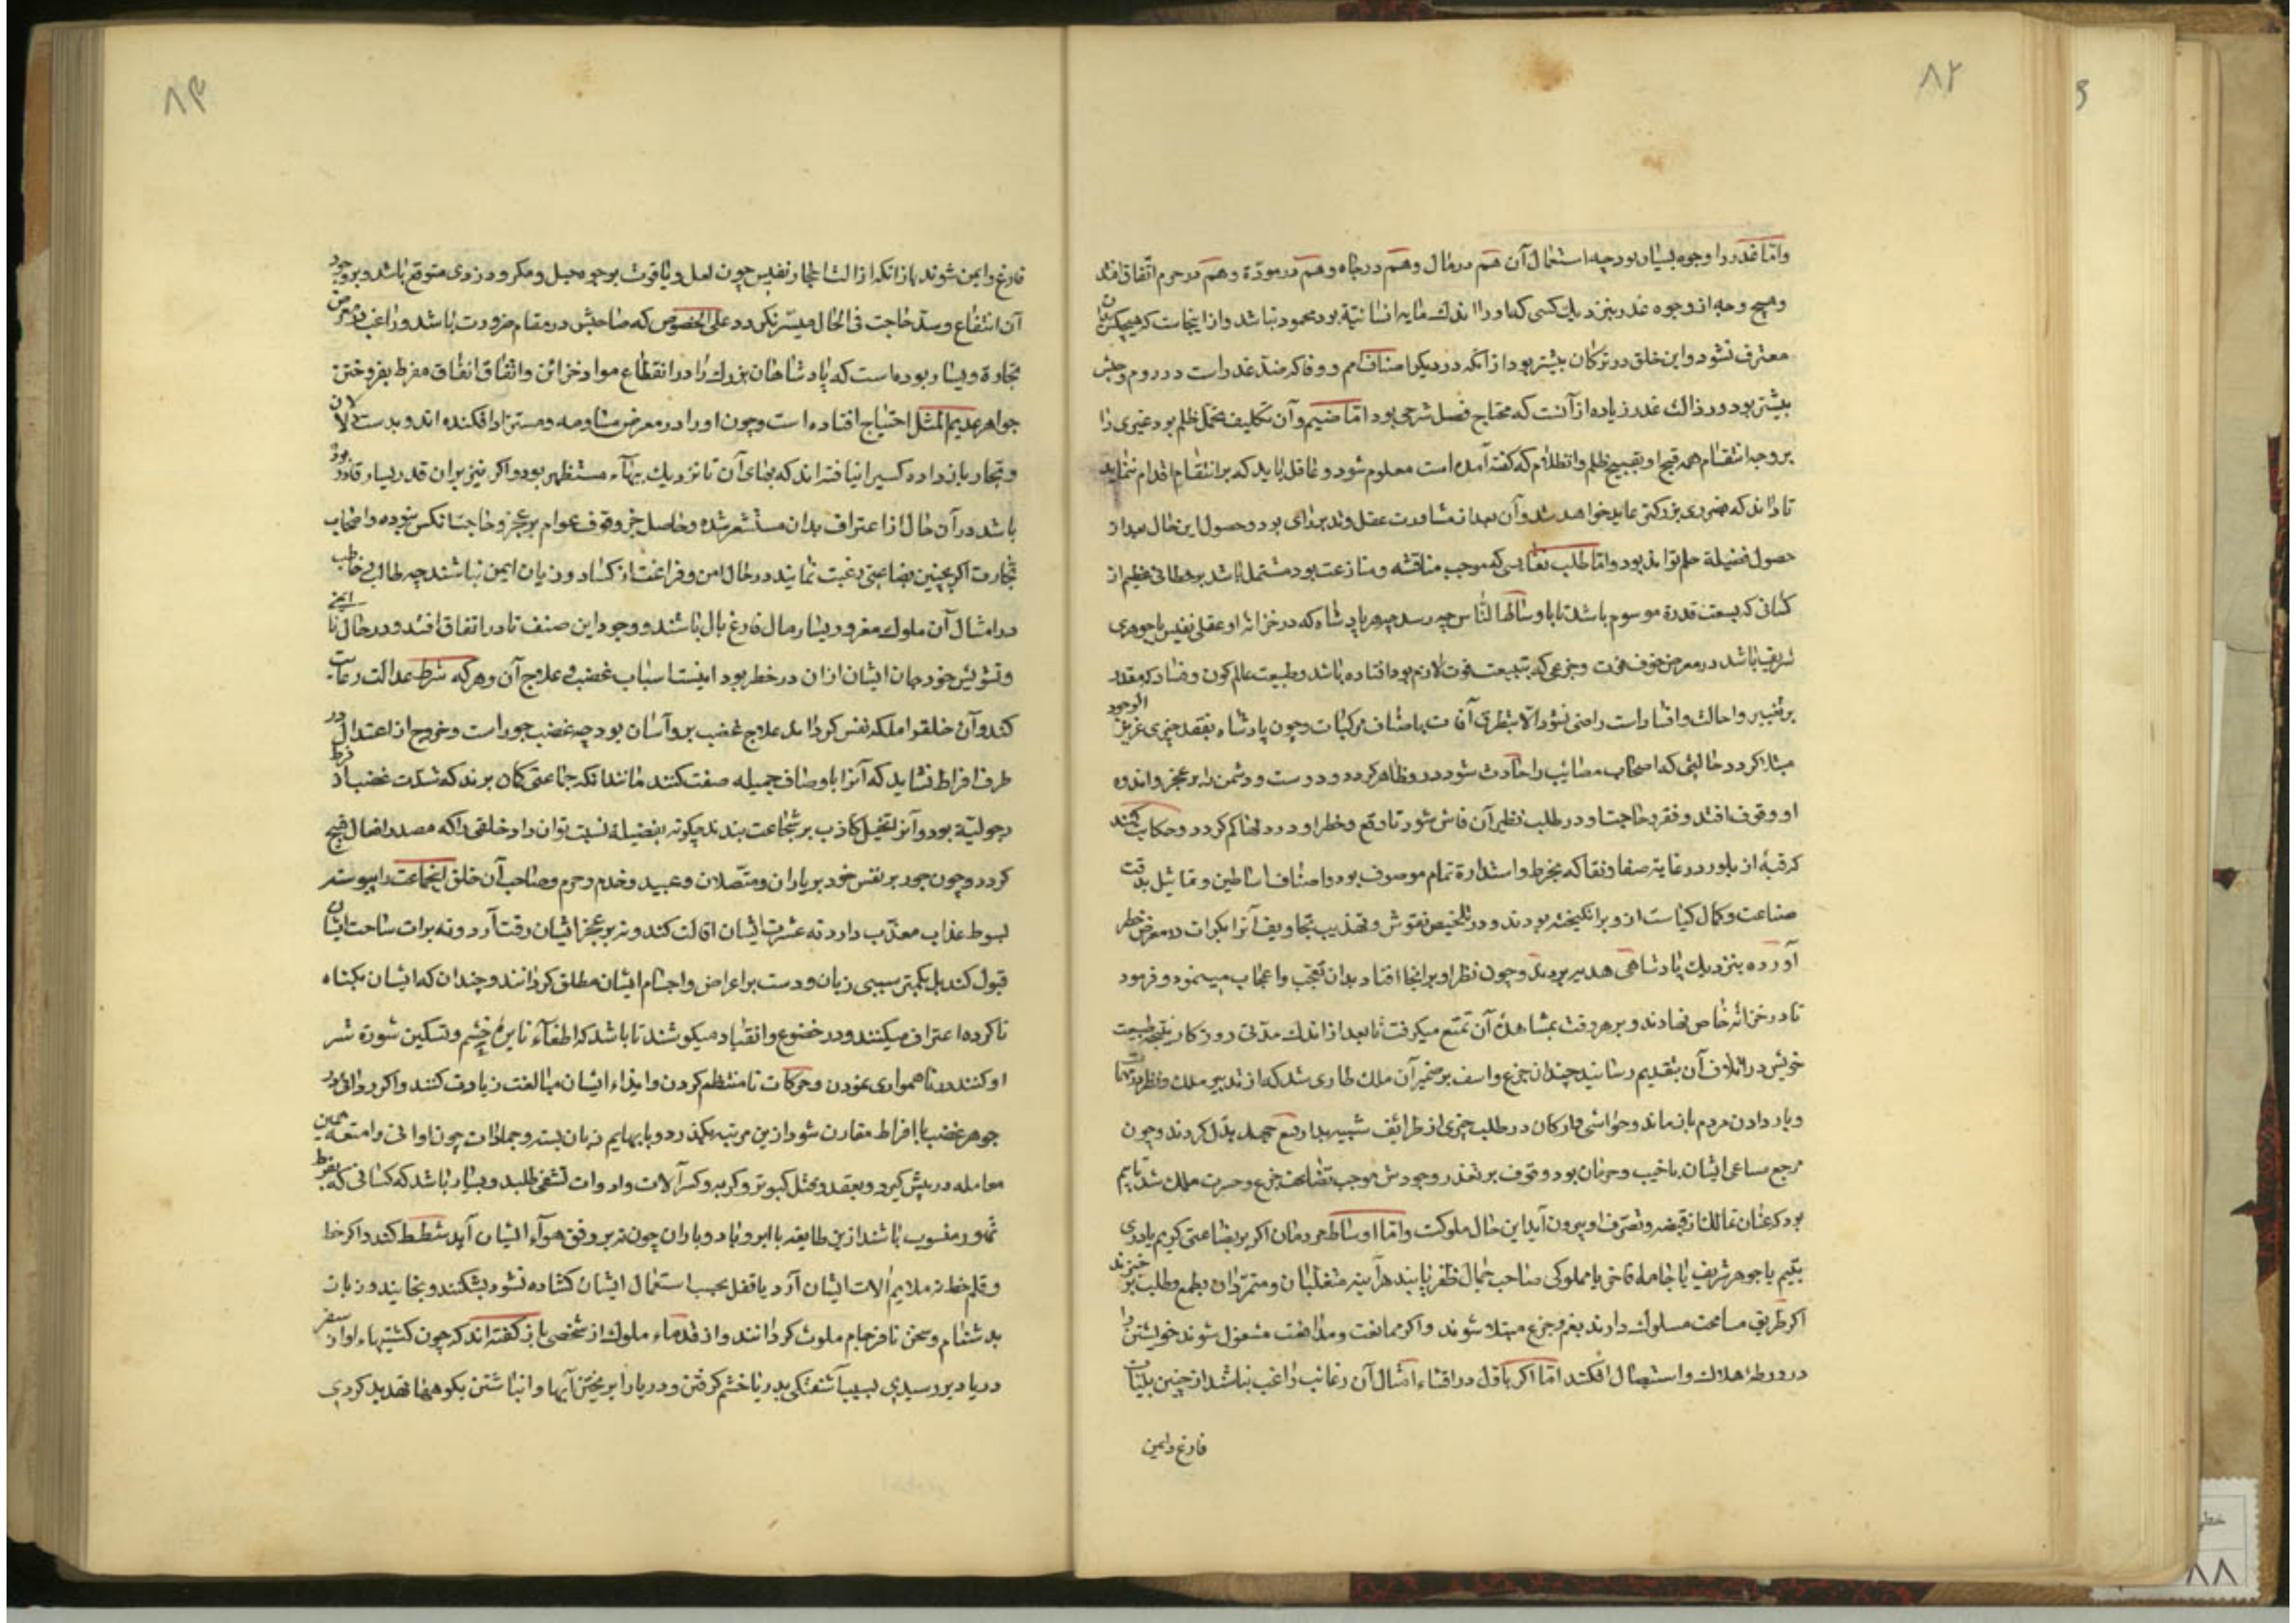 ۸۲
واما غدر را وجوه بسیار بود چه استعمال آن هم در مال و هم در جاه و هم در مودة و هم در حرم اتفاق افتد
و هیچ وجه از وجوه غدر بنزدیک کسی که او را اندک مایه انسانیة بود محمود نباشد و از اینجاست که هیچکس بآن
معترف نشود و این خلق در ترکان بیشتر بود از آنکه در دیگر اصناف امم و وفا که ضد غدر است در روم و حبش
بیشتر بود و رذالت غدر زیاده از آنست که محتاج فضل شرحی بود اما ضیم و آن تکلیف تحمل ظلم بود غیری را
بر وجه انتقام همه قبح او بقبیح ظلم و انظلام که گفته آمده است معلوم شود و عاقل باید که بر انتقام اقدام ننماید
تا داند که بضرری بزرکتر عاید نخواهد شد و آن بعد از مشاورت عقل و تدبر رای بود و حصول این حال بعد از
حصول فضیلة حلم تواند بود و اما طلب نفایسی که موجب مناقشه و منازعت بود مشتمل باشد بر خطائی عظیم از
کسانی که بسعت قدرة موسوم باشند تا باوساط الناس چه رسد چه هر پادشاه که در خزانه او علقی نفیس یا جوهری
شریف باشد در معرض خوف فوت و جزعی که بتبعیت فوت لازم بود افتاده باشد و طبیعت عالم کون و فساد که مقدر
بر تغییر و احالت و افسادست راضی نشود الا بتطرق آفات باصناف مرکبات و چون پادشاه بفقد چیزی عزیز الوجود
مبتلا کردد حالتی که اصحاب مصائب را حادث شود در او ظاهر کردد و دوست و دشمن را بر عجز و اندوه
او وقوف افتد و فقر و حاجت او در طلب نظیر آن فاش شود تا وقع و خطر او در دلها کم کردد و حکایت کنند
که قبهٔ از بلور در غایة صفا و نقا که بخرط و استدارة تمام موصوف بود و اصناف اساطین و تماثیل بدقت
صناعت و کمال کیاست از و برانگیخته بودند و در تلخیص نقوش و تهذیب تجاویف آنرا بکرات در معرض خطر
آورده بنزدیک پادشاهی هدیه بردند و چون نظر او بر آنجا افتاد بدان تعجب و اعجاب مینمود و فرمود
تا در خزانه خاص نهادند و بر هر وقت بمشاهدهٔ آن تمتع میکرفت تا بعد از اندک مدتی روزکار نتیجه طبیعت
خویش در اتلاف آن بتقدیم رسانید چندان جزع و اسف بر ضمیر آن ملک طاری شد که از تدبیر ملک و نظر در مهمات
و بار دادن مردم باز ماند و حواشی و ارکان در طلب چیزی از ظرائف شبیه بدان رفع جهد بذل کردند و چون
مرجع مساعی ایشان با خیبت و حرمان بود و وقوف بر تعذر وجودش موجب تضاعف جزع و حسرت ملک شد تا بیم
بود که عنان تمالک از قبضه و تصرف او بیرون آید این حال ملوکست و اما اوساط مردمان اکر بر بضاعتی کریم یا دری
یتیم یا جوهر شریف یا جامه فاخر یا مملوکی صاحب جمال ظفر یابند هر آینه متغلبان و متمردان بطمع و طلب برخیزند
اکر طریق مسامحت مسلوک دارند بغم و جزع مبتلا شوند و اکر ممانعت و مدافعت مشغول شوند خویشتن را
در ورطهٔ هلاک و استیصال افکند اما اکر باول در اقتناء امثال آن رغائب راغب نباشد از چنین بلیات
فارغ و ایمن
۸۳
فارغ و ایمن شوند باز آنکه از الت احجار نفیس چون لعل و یاقوت بر وجوه حیل و مکر و دزدی متوقع باشد و بر وجود
آن انتفاع و سد حاجت فی الحال میسر نکردد علی الخصوص که صاحبش در مقام ضرورت باشد و راغب در معرض
تجارة و بسیار بوده است که پادشاهان بزرک را در انقطاع مواد خزائن و اتفاق انفاق مفرط بفروختن
جواهر عدیم المثل احتیاج افتاده است و چون او را در معرض مساومه و مستزاد افکنده اند و بدست دلالان
و تجار باز داده کسیرا نیافته اند که بهای آن تا نزدیک ببهاء مستظهر بود و اکر نیز بر آن قدر یسار قادر بوده
باشد در آن حال از اعتراف بدان مستشعر شده و حاصل جز وقوف عوام بر عجز و حاجت آنکس نبوده و اصحاب
تجارت اکر بچنین بضاعتی رغبت نمایند در حال امن و فراغت از کساد و زیان ایمن نباشند چه طالب و خاطب
در امثال آن ملوک مغرور بیسار مال فارغ بال باشند و وجود این صنف نادر اتفاق افتد و در حال نا ایمنی
و تشویش خود جان ایشان ازان در خطر بود اینست اسباب غضب و علاج آن و هر که شرط عدالت رعایت
کند و آن خلق را ملکه نفس کرداند علاج غضب بر و آسان بود چه غضب جور است و خروج از اعتدال در
طرف افراط نشاید که آنرا باوصاف جمیله صفت کنند مانند آنکه جماعتی کمان برند که شدت غضب از فرط
رجولیة بود و آنرا بتخیل کاذب بر شجاعت بندند چکونه بفضیلة نسبت توان داد خلقی را که مصدر افعال قبیح
کردد و چون جور بر نفس خود بر یاران و متصلان و عبید و خدم و حرم و صاحب آن خلق این جماعت را پیوسته
بسوط عذاب معذب دارد نه عثرت ایشان اقالت کند و نه بر عجز ایشان رقت آرد و نه برات ساحت ایشان
قبول کند بل بکمتر سببی زبان و دست بر اعراض و اجسام ایشان مطلق کردانند و چندان که ایشان بکناه
ناکرده اعتراف میکنند و در خضوع و انقیاد میکوشند تا باشد که اطفاء نایرهٔ خشم و تسکین شورة شر
او کنند در ناهمواری نمودن و حرکات نامنتظم کردن و ایذاء ایشان مبالغت زیادت کنند و اکر ردائت در
جوهر غضب با افراط مقارن شود ازین مرتبه بکذرد و با بهایم زبان بسته و جمادات چون اوانی و امتعه همین
معامله در پیش کیرد و بعقد و بمثل کبوتر و کربه و کسر آلات و ادوات تشفی طلبد و بسیار باشد که کسانی که بفرط
تهور منسوب باشند ازین طایفه با ابر و باد و باران چون نه بر وفق هوآء ایشان آید شطط کند و اکر خط
و قلم خط نه ملایم آلات ایشان آرد یا قفل بحسب استعمال ایشان کشاده نشود بشکنند و بخایند و زبان
بدشنام و سخن نافرجام ملوث کردانند و از قدماء ملوک از شخصی باز گفته اند که چون کشتیهاء او از سفر
دریا دیر رسیدی بسبب آشفتکی بدریا خشم کرفتن و دریا را بریختن آبها و انباشتن بکوهها تهدید کردی